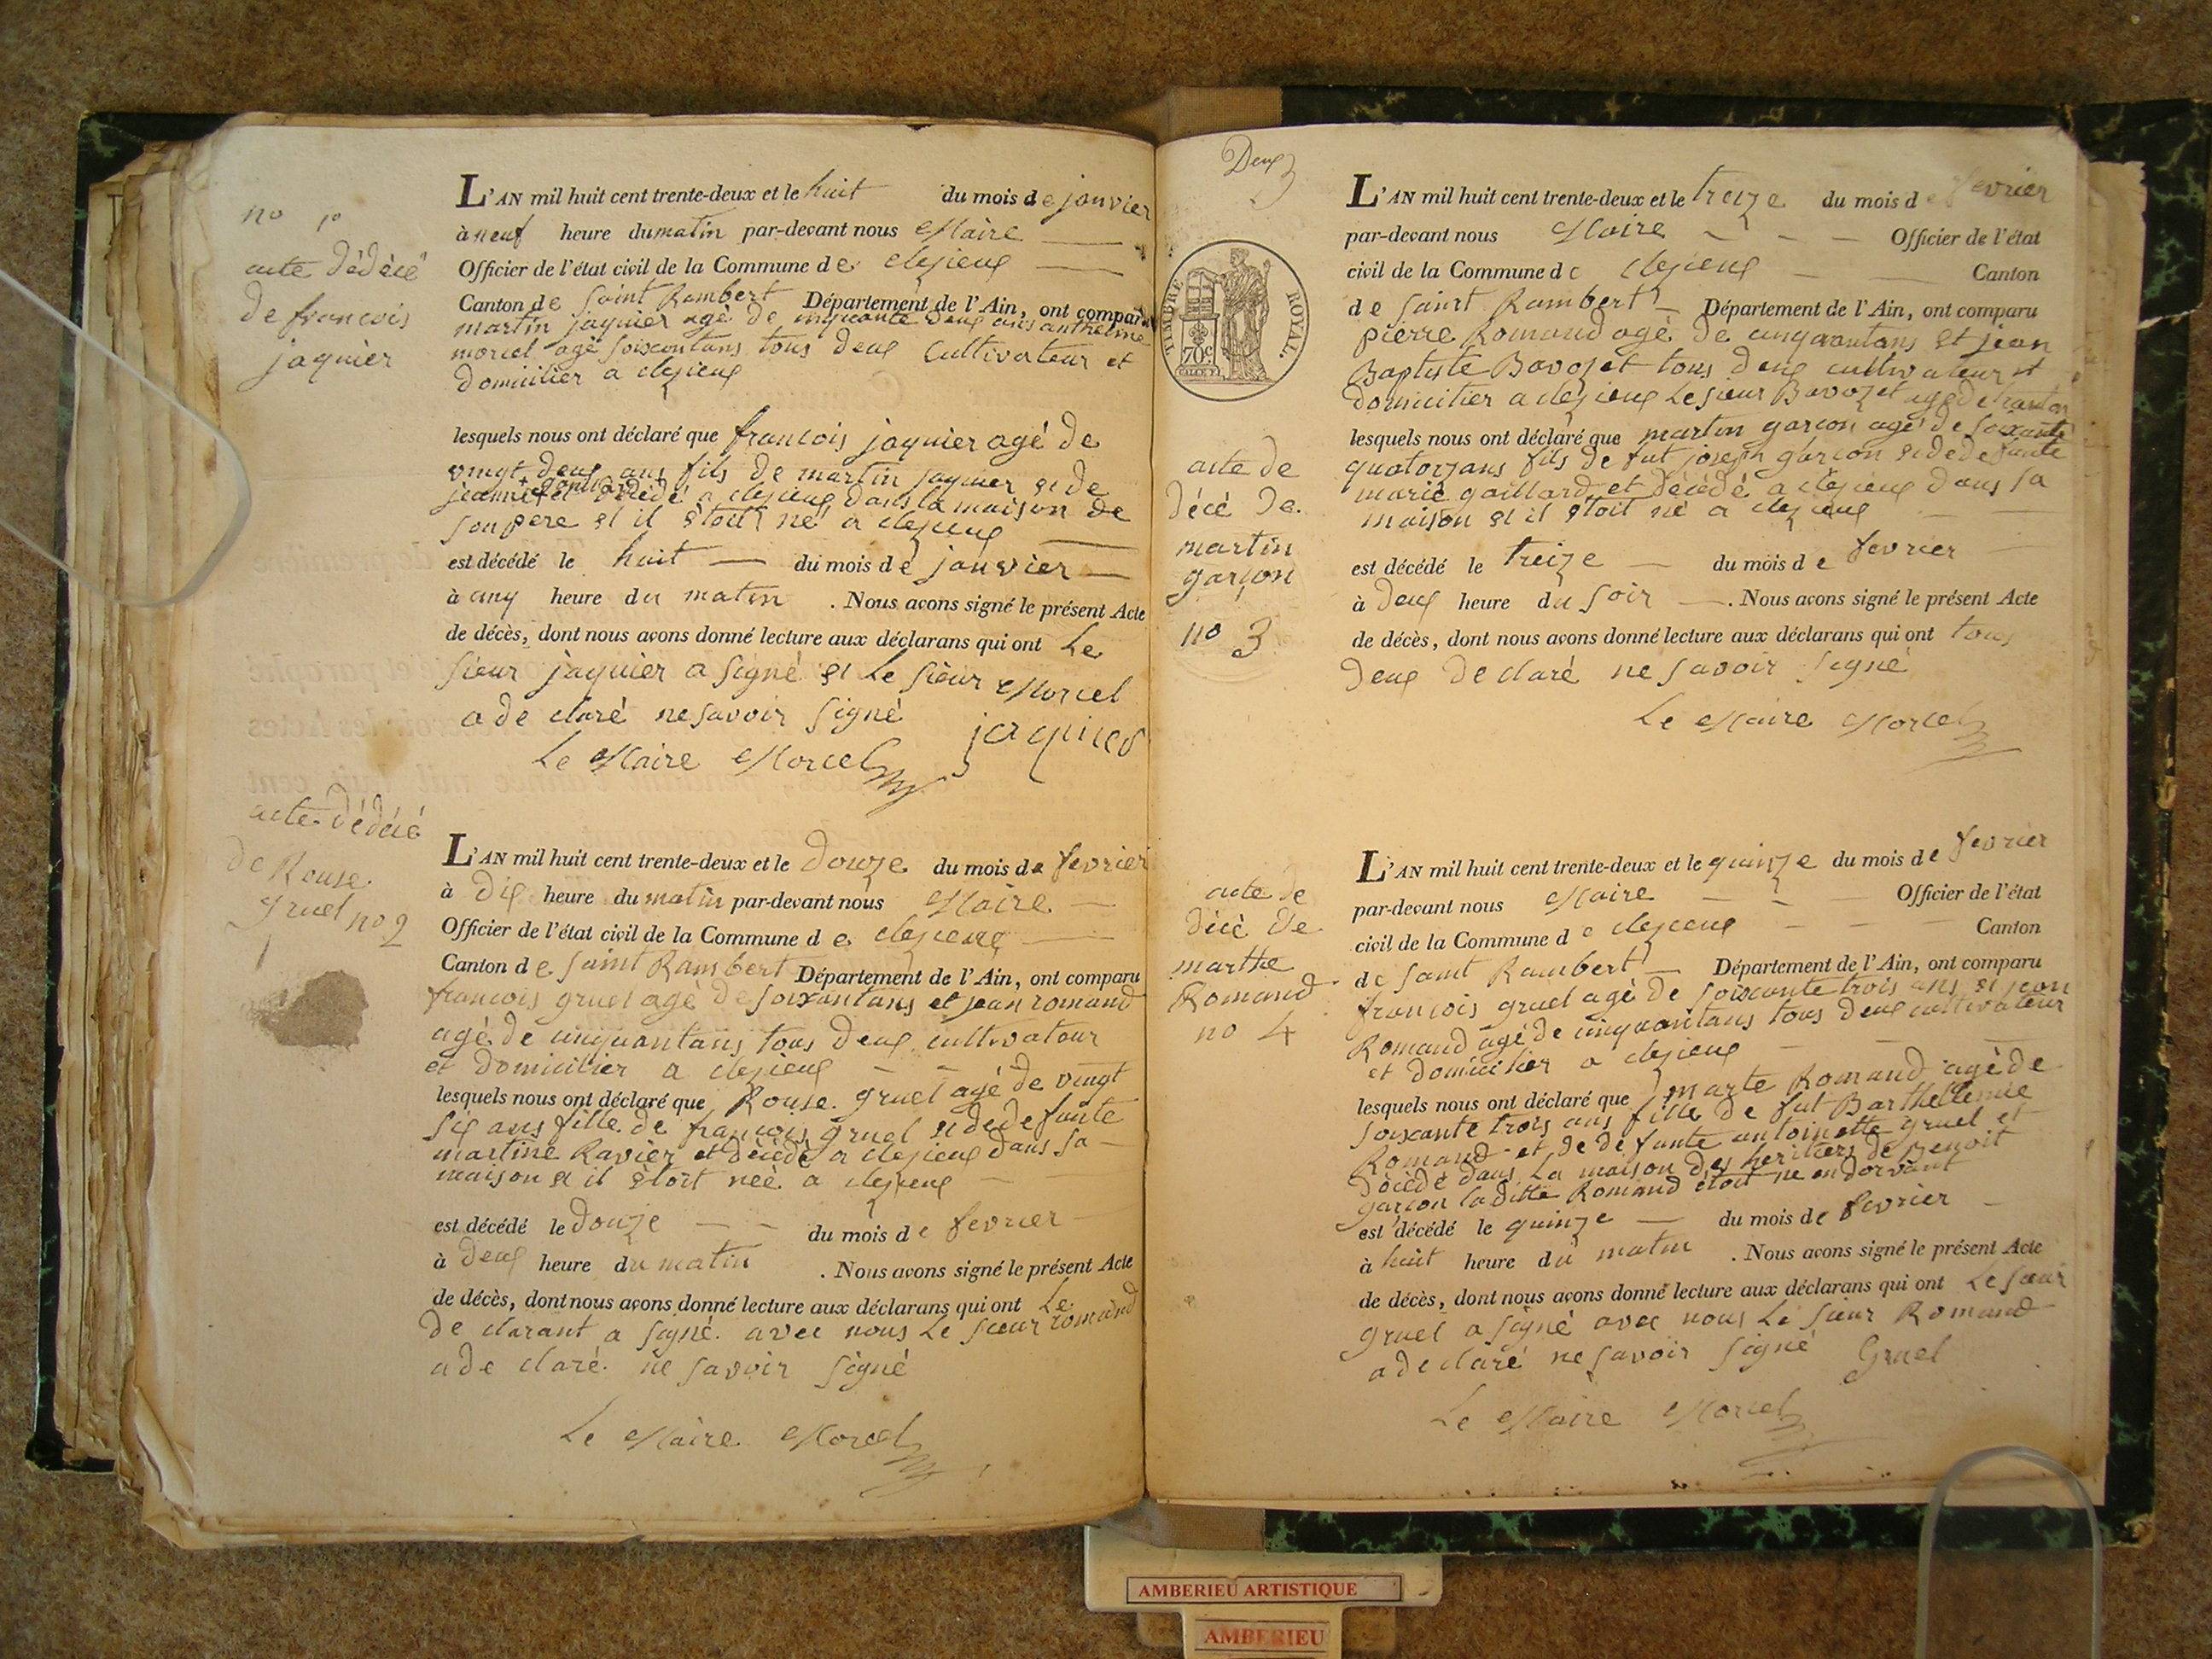 no 1o
acte dédécé
de francois
jaquier
L'AN mil huit cent trente-deux et le huit du mois de janvier
à neuf heure du matin par-devant nous Maire
Officier de l'état civil de la Commune de clezieux
Canton de Saint Rambert Département de l'Ain, ont comparu
martin jaquier agé de cinquante deux ans anthelme
morcel agé soixantans tous deux Cultivateur et
domicilier a clezieux
lesquels nous ont déclaré que francois jaquier agé de
vingt deux ans fils de martin jaquier et de
jeanne et décédé a clezieux dans la maison de
son pere et il étoit né a clezieux
est décédé le huit du mois de janvier
à cinq heure du matin . Nous avons signé le présent Acte
de décès, dont nous avons donné lecture aux déclarans qui ont Le
sieur jaquier a signé et Le sieur Morcel
a de claré ne savoir signé
jaquier
Le Maire Morcel
acte dédécé
de Rouse
gruel no 2
L'AN mil huit cent trente-deux et le douze du mois de fevrier
à dix heure du matin par-devant nous Maire
Officier de l'état civil de la Commune de clezieux
Canton de Saint Rambert Département de l'Ain, ont comparu
francois gruel agé de soixantans et jean romand
agé de cinquantans tous deux cultivatour
et domicilier a clezieux
lesquels nous ont déclaré que Rouse gruel agé de vingt
six ans fille de francois gruel et de defunte
martine Ravier et décédé a clezieux dans sa
maison et il étoit néé a clezieux
est décédé le douze du mois de fevrier
à deux heure du matin . Nous avons signé le présent Acte
de décès, dont nous avons donné lecture aux déclarans qui ont Le
de clarant a signé avec nous Le sieur romand
a de claré ne savoir signé
Le Maire Morcel
Deux
TIMBRE ROYAL
70c
acte de
décé de
martin
garçon
no 3
L'AN mil huit cent trente-deux et le treize du mois de fevrier
par-devant nous Maire Officier de l'état
civil de la Commune de clezieux Canton
de saint Rambert Département de l'Ain, ont comparu
pierre Romand agé de cinquantans et jean
Baptiste Bavozet tous deux cultivateur et
domicilier a clezieux Le sieur Bavozet agé de
lesquels nous ont déclaré que martin garcon agé de soixante
quatorzans fils de fut joseph garcon et de defunte
marie gaillard et décédé a clezieux dans sa
maison et il étoit né a clezieux
est décédé le treize du mois de fevrier
à deux heure du soir . Nous avons signé le présent Acte
de décès, dont nous avons donné lecture aux déclarans qui ont tous
deux de claré ne savoir signé
Le Maire Morcel
acte de
décé de
marthe
Romand
no 4
L'AN mil huit cent trente-deux et le quinze du mois de fevrier
par-devant nous Maire Officier de l'état
civil de la Commune de clezieux Canton
de saint Rambert Département de l'Ain, ont comparu
francois gruel agé de soixante trois ans et jean
Romand agé de cinquantans tous deux cultivateur
et domicilier a clezieux
lesquels nous ont déclaré que marte Romand agé de
soixante trois ans fille de fut Barthellemie
Romand et de defunte antoinette gruel et
décédé dans La maison des heritiers de Benoit
garcon laditte Romand étoit né en dorvant
est décédé le quinze du mois de fevrier
à huit heure du matin . Nous avons signé le présent Acte
de décès, dont nous avons donné lecture aux déclarans qui ont Le sieur
gruel a signé avec nous Le sieur Romand
a declaré ne savoir signé Gruel
Le Maire Morcel
AMBERIEU ARTISTIQUE
AMBERIEU